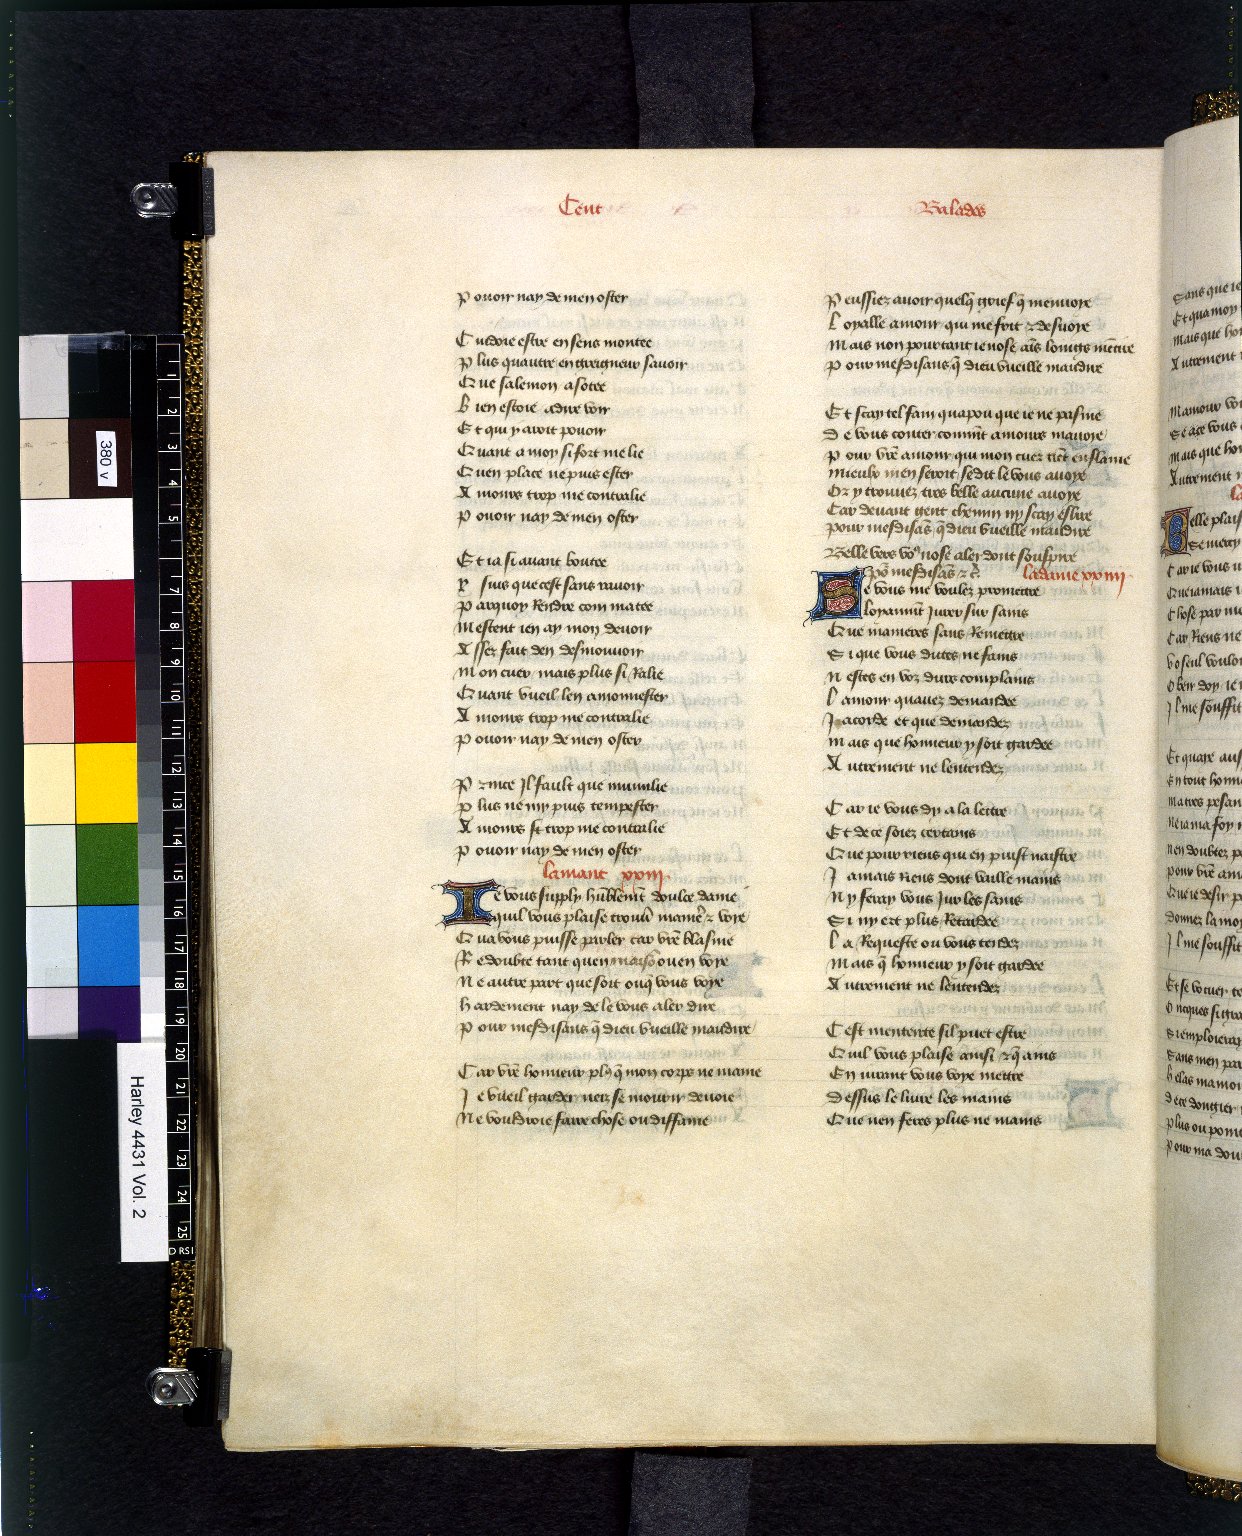 Cent
Balades
Pouoir nay de men oster
Cuidoie estre en sens montee
Plus quautre en greigneur sauoir
Que salemon a sotee
Bien estoie a dire voir
Et qui y auoit pouoir
Quant a moy si fort me lie
Quen place ne puis ester
Amours trop me contralie
Pouoir nay de men oster
Et ia si auant boutee
suis que cest sans rauoir
Par quoy Rendre com matee
Mestent ien ay mon deuoir
Assez fait den desmouuoir
Mon cuer mais plus si Ralie
Quant vueil len amonnester
Amours trop me contralie
Pouoir nay de men oster
Prince Il fault que mumilie
Plus ne my puis tempester
Amours si trop me contralie
Pouoir nay de men oster
Lamant xxiij
Ie vous supply hūblemēt doulce dame
quil vous plaise trouuer maniē & voye
Qua vous puisse parler car vrē blasme
Redoubte tant quen maiso ou en voye
Ne autre part que soit ouq̄ vous voye
hardement nay de le vous aler dire
Pour mesdisans q̄ dieu vueille maudire
Car vrē honneur pl9 q̄ mon corps ne mame
Je vueil garder neiz se mourir deuoie
Ne vouldroie faire chose ou diffame
Peussiez auoir quelq̄ grief q̄ menuoye
Loyalle amour qui me frit & desuoye
Mais non pourtant ie nose aīs loingis mēt tire
Pour mesdisans q̄ dieu vueille maudire
Et scay tel fain quapou que ie ne pasme
De vous conter commēt amours mauoye
Pour vrē amour qui mon cuer tiēt en flame
Mieulx men seroit se dit le vous auoye
Or y trouuez tres belle aucune auoye
Car deuant gent chemin ny scay eslire
Pour mesdisās q̄ dieu vueille maudire
Belle vers vo9 nose aler dont souspire
Po9 mesdisās & c̄.
La dame xxiiij
Se vous me voulez promettre
loyaumēt Jurer sur sains
Que manieres sans Remettre
Si que vous dites ne fains
Nestes en voz dires complains
Lamour quauez demandee
Jacorde et que demandez
Mais que honneur y soit gardee
Autrement ne lentendez
Car ie vous dy a la lettre
Et de ce soiez certains
Que pour riens qui en puist naistre
Jamais Riens dont vaille mains
Ny feray vous Jur les sains
Si ny ert plus Retardee
La Requeste ou vous tendez
Mais q̄ honneur y soit gardee
Autrement ne lentendez
Cest mentente sil puet estre
Quil vous plaise ainsi & q̄ ains
En iurant vous voye mettre
Dessus le liure les mains
Que nen feres plus ne mains
380 v
Harley 4431 Vol. 2
1
2
3
4
5
7
8
9
10
11
12
13
14
15
16
17
18
19
20
21
22
23
24
25